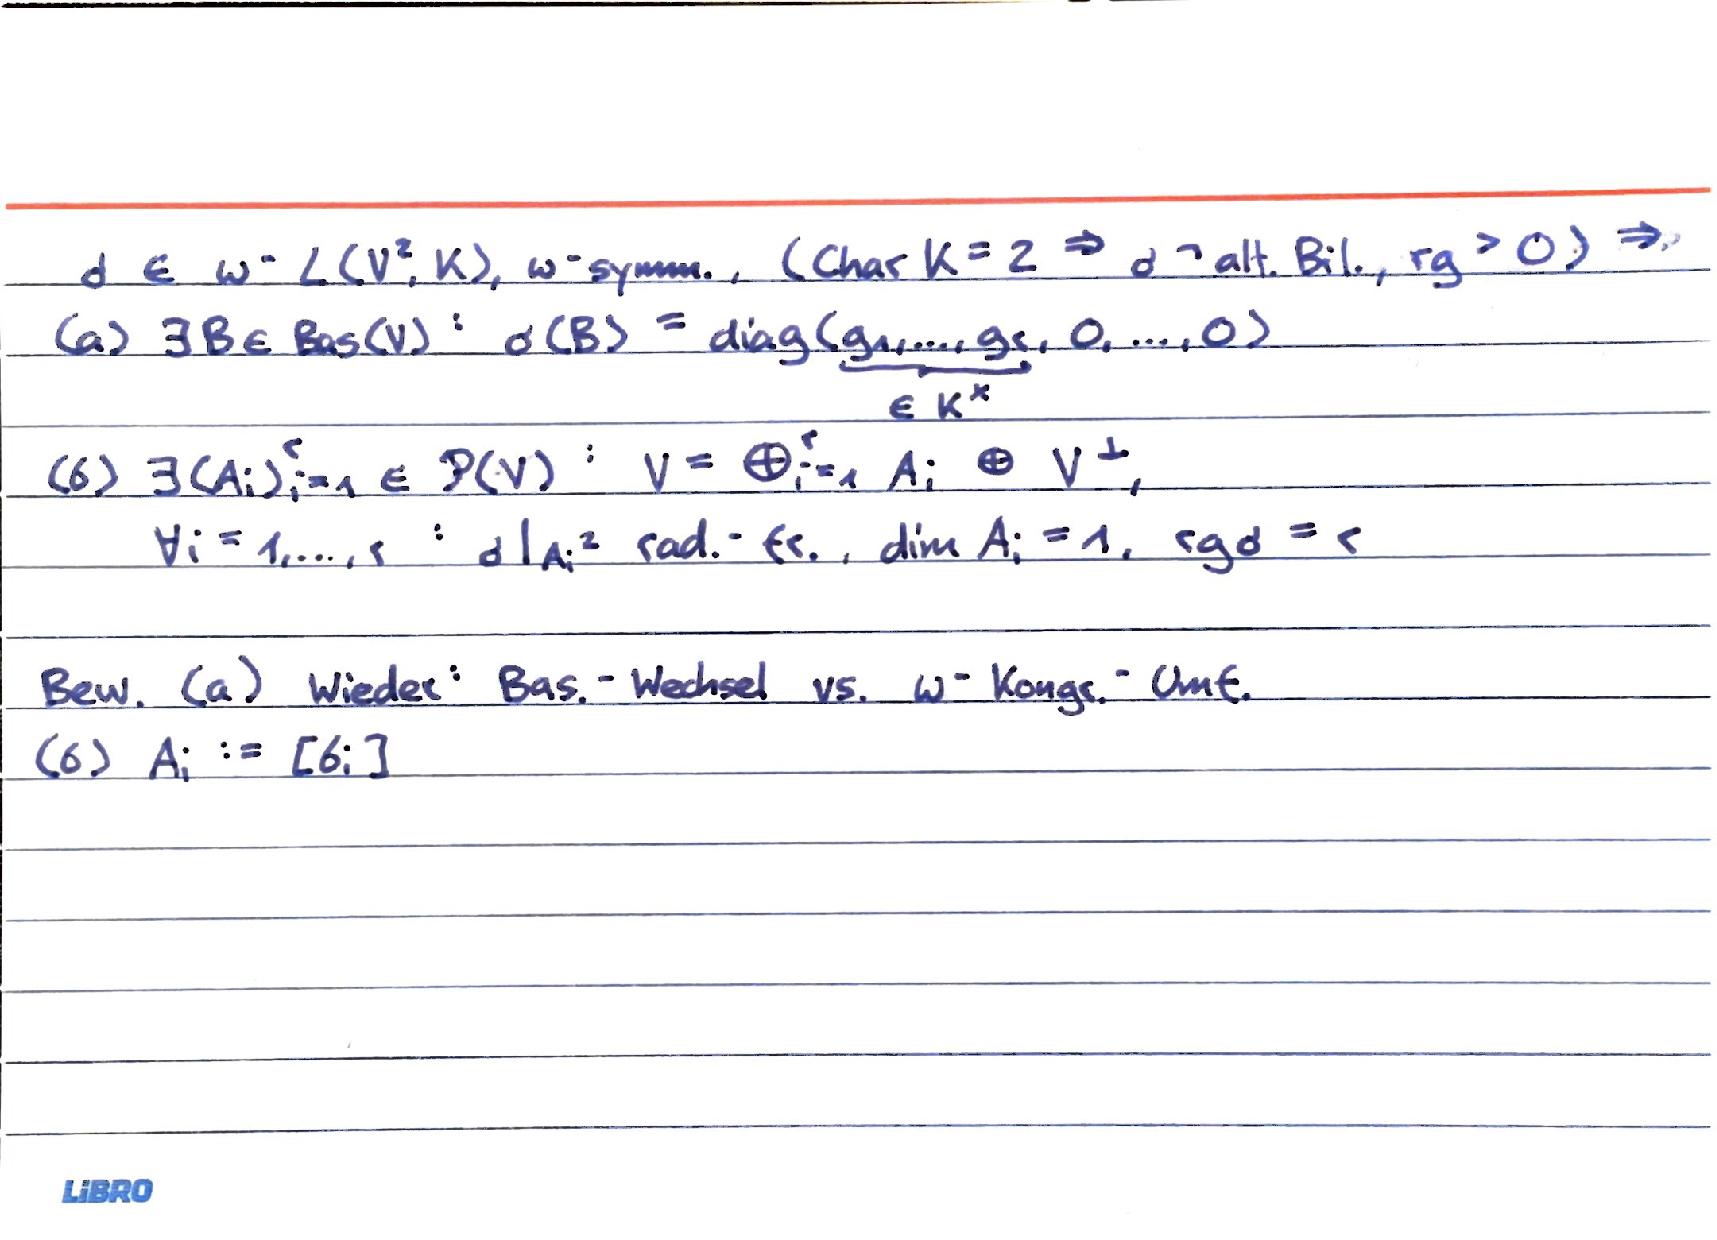 σ ∈ ω-L(V², K), ω-symm., (Char K = 2 ⇒ σ ¬ alt. Bil., rg > 0) ⇒
(a) ∃B ∈ Bas(V) : σ(B) = diag(g₁,...,gᵣ, 0,...,0)
∈ K^×
(b) ∃(Aᵢ)ʳᵢ₌₁ ∈ P(V) : V = ⊕ʳᵢ₌₁ Aᵢ ⊕ V^⊥,
∀i = 1,...,r : σ|Aᵢ² rad.-fr., dim Aᵢ = 1, rgσ = r
Bew. (a) Wieder: Bas.-Wechsel vs. ω-Kongr.-Umf.
(b) Aᵢ := [bᵢ]
LiBRO